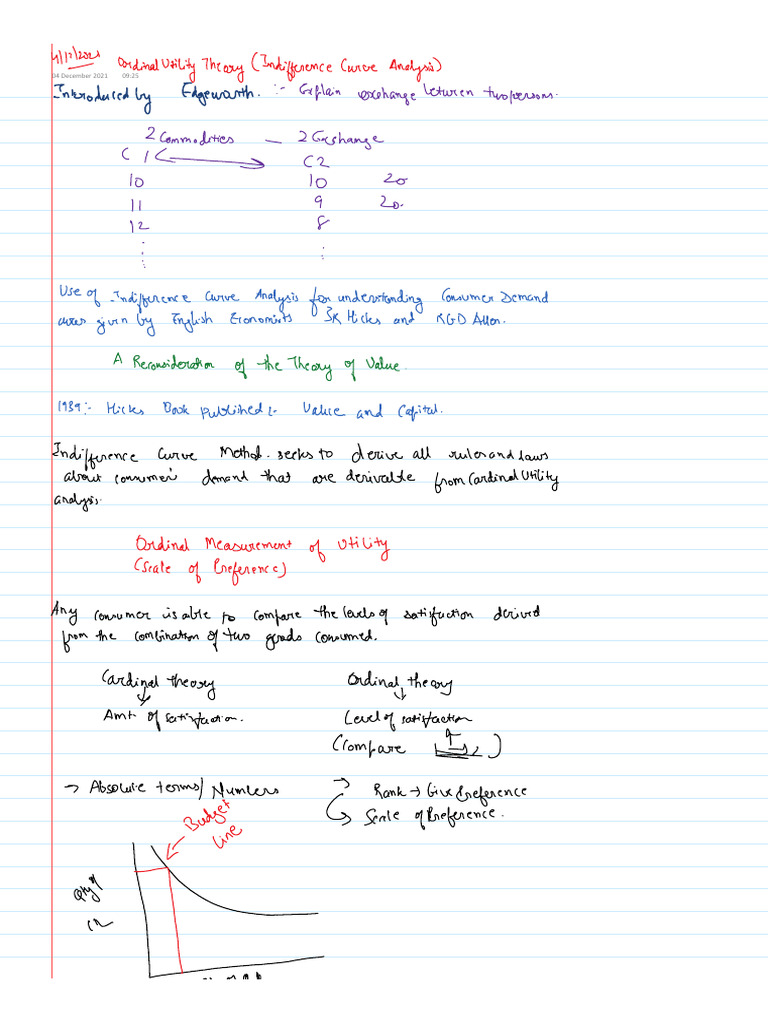 4/12/2021 Ordinal Utility Theory (Indifference Curve Analysis)
04 December 2021 09:25
Introduced by Edgeworth. :- Explain exchange between two persons.
2 Commodities — 2 Exchange
C1 C2
10 10 20
11 9 20.
12 8
Use of Indifference Curve Analysis for understanding Consumer Demand
was given by English Economists JR Hicks and RGD Allen.
A Reconsideration of the Theory of Value.
1939:- Hicks Book published :- Value and Capital.
Indifference Curve Method. seeks to derive all rules and laws
about consumer's demand that are derivable from Cardinal Utility
analysis.
Ordinal Measurement of Utility
(Scale of Preference)
Any consumer is able to compare the levels of satisfaction derived
from the combination of two goods consumed.
Cardinal theory Ordinal theory
Amt. of satisfaction. Level of satisfaction
(Compare )
→ Absolute terms/Numbers → Rank → Give Preference
Scale of Preference.
Budget
line
Qty of